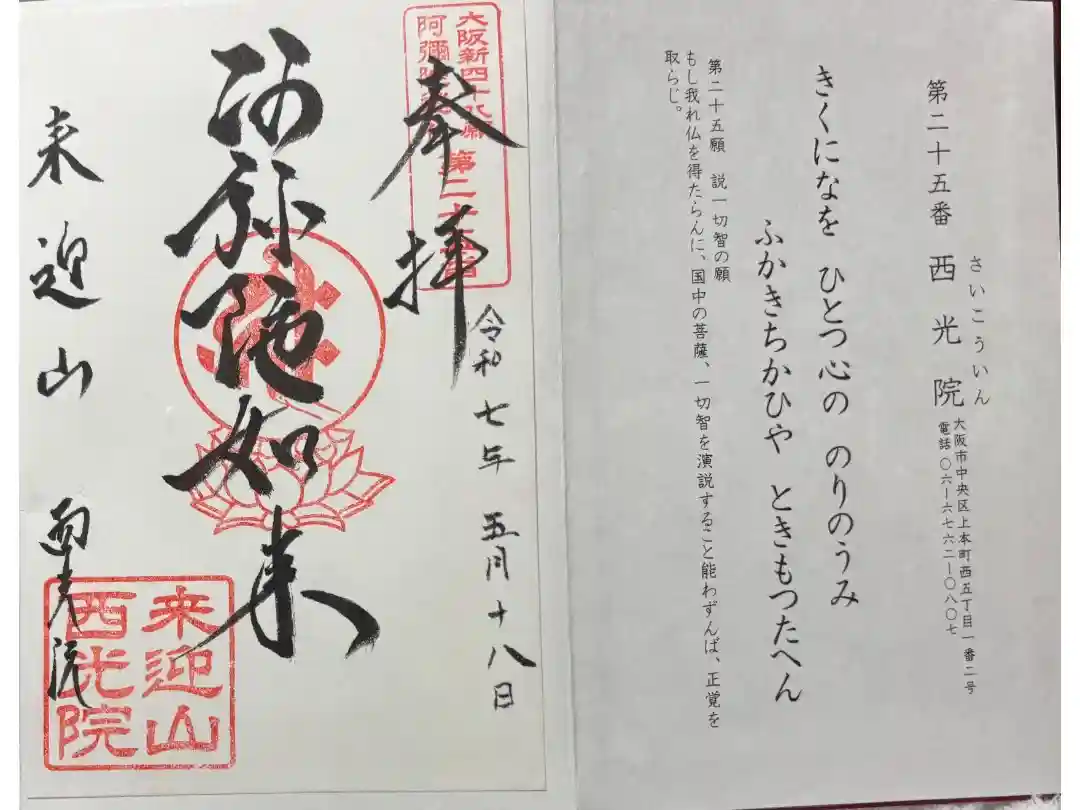 第二十五番 西光院
さいこういん
大阪市中央区上本町西五丁目一番二号
電話 〇六ー六七六二ー〇八〇七
きくになを ひとつ心の のりのうみ
ふかきちかひや ときもつたへん
第二十五願 説一切智の願
もし我れ仏を得たらんに、国中の菩薩、一切智を演説すること能わずんば、正覚を
取らじ。
大阪新四十八願
阿彌陀
第二十五番
奉拝
令和七年五月十八日
阿弥陀如来
来迎山 西光院
来迎山
西光院